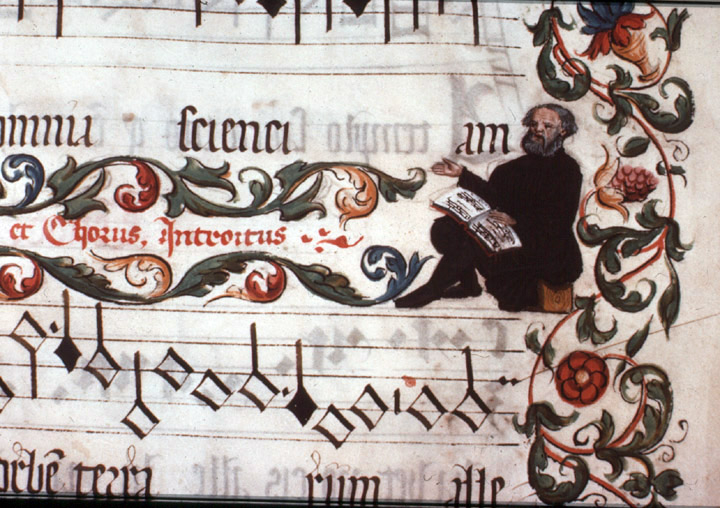 omnia scienci am
et Chorus, Introitus
orbē terra rum alle